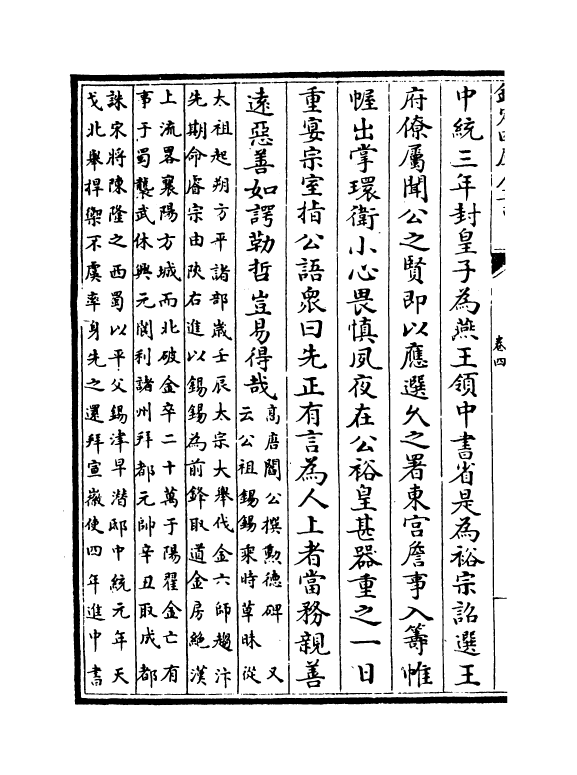 欽定四庫全書
卷四
中統三年封皇子為燕王領中書省是為裕宗詔選王
府僚屬聞公之賢即以應選乆之署東宫詹事入籌帷
幄出掌環衛小心畏慎夙夜在公裕皇甚器重之一日
重宴宗室指公語衆曰先正有言為人上者當務親善
遠惡善如諤勒哲豈易得哉
高唐閻公撰勲德碑 又
云公祖錫錫乘時草昧從
太祖起朔方平諸部嵗壬辰太宗大舉伐金六師趨汴
先期命睿宗由陜右進以錫錫為前鋒取道金房絶漢
上流畧襄陽方城而北破金卒二十萬于陽翟金亡有
事于蜀襲武休興元閬利諸州拜都元帥辛丑取成都
誅宋將陳隆之西蜀以平父錫津早潛邸中統元年天
戈北舉捍禦不虞率身先之還拜宣徽使四年進中書